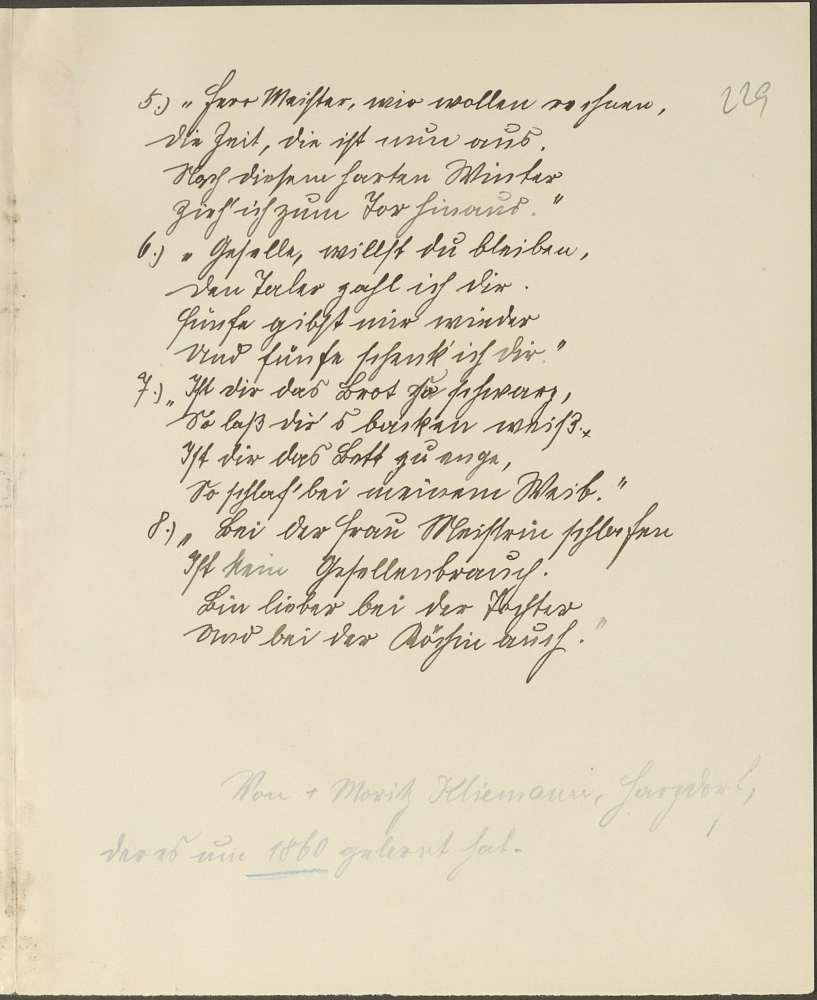 229
5.) „Herr Meister, wir wollen rechnen,
Die Zeit, die ist nun aus.
Nach diesem harten Winter
Zieh' ich zum Tor hinaus."
6.) „Geselle, willst du bleiben,
Den Taler zahl ich dir.
Fünfe gibst mir wieder
Und fünfe schenk' ich dir."
7.) „Ist dir das Brot zu schwarz,
So laß dir's backen weiß.
Ist dir das Bett zu enge,
So schlaf' bei meinem Weib."
8.) „Bei der Frau Meistrin schlafen
Ist kein Gesellenbrauch.
Bin lieber bei der Tochter
Und bei der Köchin auch."
Von + Moritz Kliemann, Harzdorf,
der es um 1860 gelernt hat.